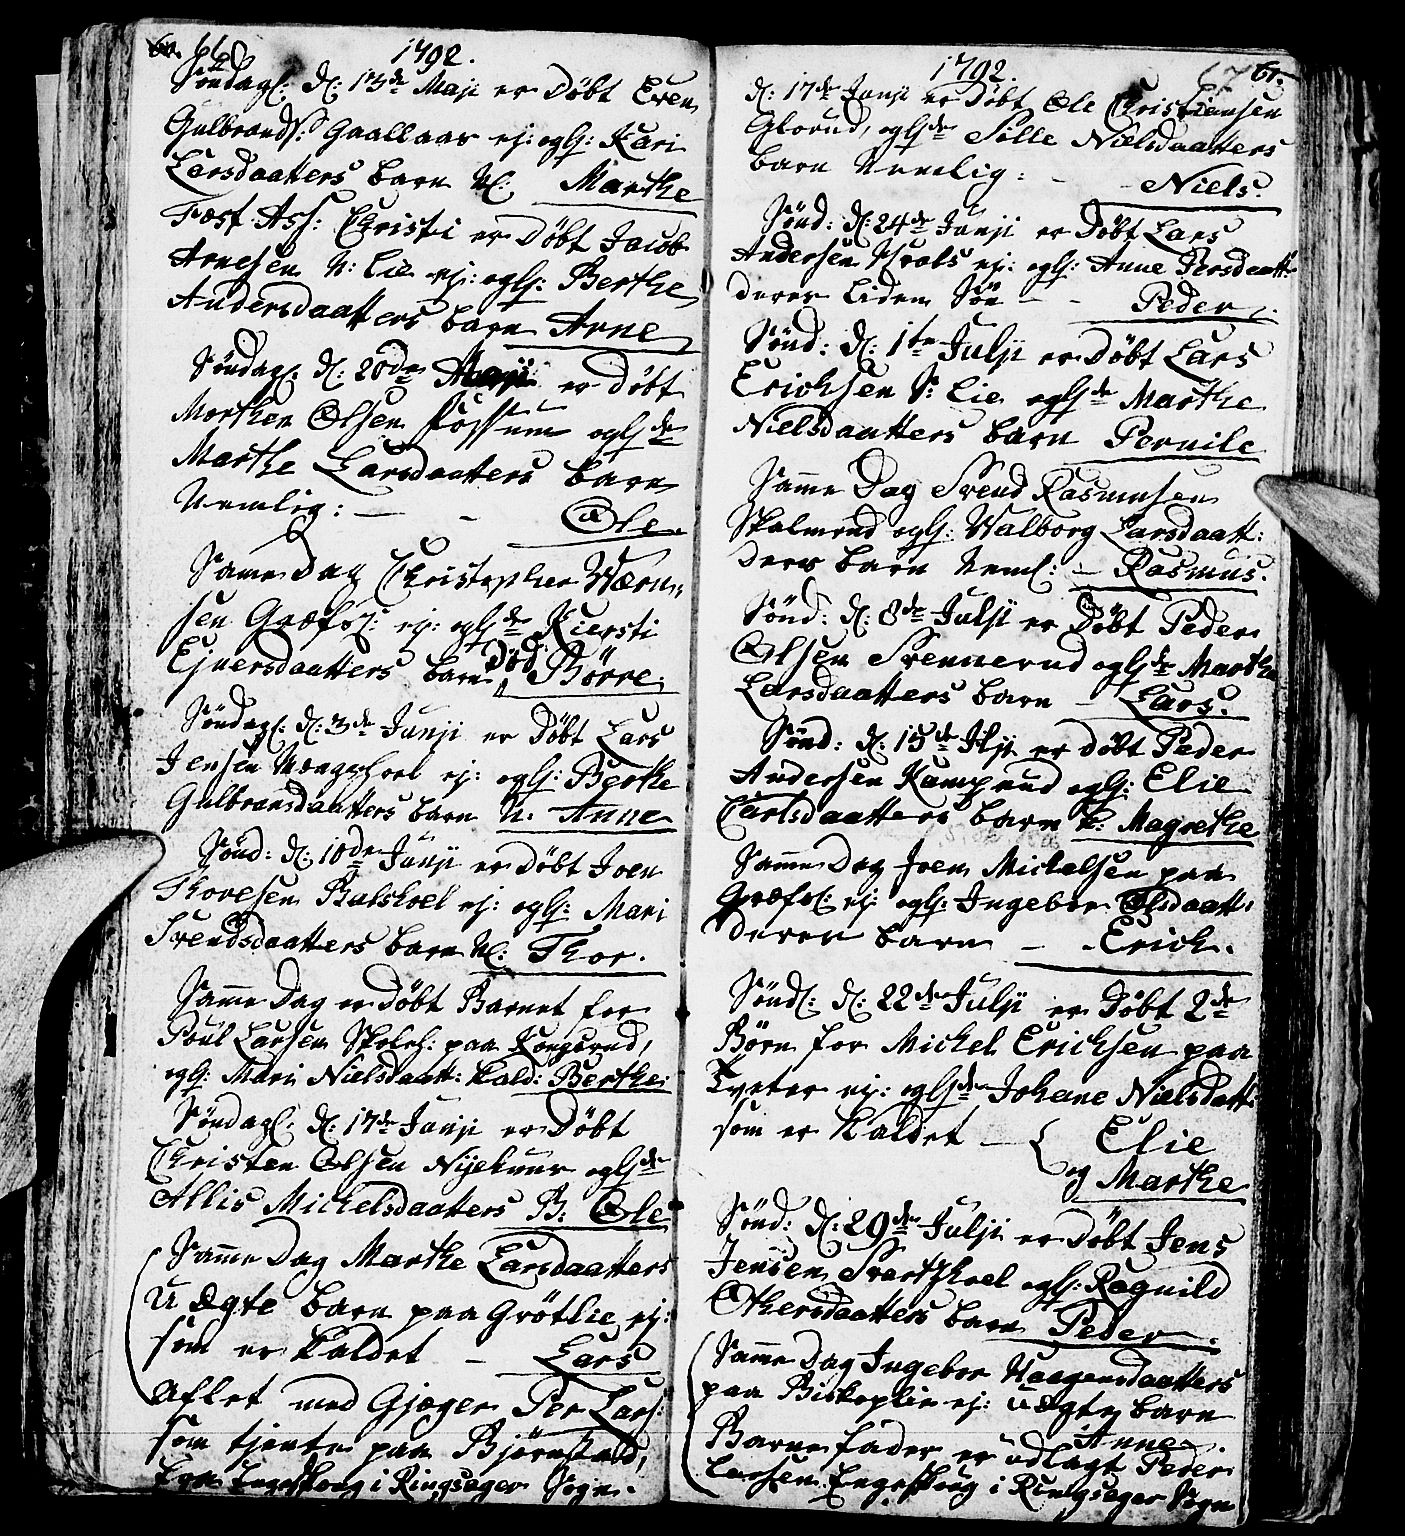 66
1792.
Søndagl: d: 13de Maji er Døbt Even
Gulbrands: Gaallaas ej: oglh: Kari
Larsdaatters barn Nl: Marthe
Fæst Ass: Christi er Døbt Jacob
Arnesen N: Lie ej: oglh: Berthe
Andersdaatters barn Arne
Søndagl: d: 20de Maji er døbt
Morthen Olsen Fossum oglhde
Marthe Larsdaatters barn
Nemlig: - - Ole.
Same Dag Christopher
sen Græfsl: ej: oglhde Kiersti
Ejnersdaatters barn død Børre.
Søndagl: d: 3de Junji er Døbt Lars
Jensen ej: oglh: Berthe
Gulbransdaatters barn N: Anne
Sønd: d: 10de Junji er Døbt Joen
Thoresen Balshoel ej: oglh: Mari
Svendsdaatters barn Nl: Thor.
Samme Dag er Døbt Barnet for
Poul Larsen Skoleh: paa Kongsrud,
oglh: Mari Nielsdaatt: kald: Berthe.
Søndagl: d: 17de Junji er Døbt
Christen Olsen oglhde
Allis Michelsdaatters B: Ole
Samme Dag Marthe Larsdaatters
U Ægte barn paa Grøtlie ej:
som er kaldet - Lars
Aflet med Gjæger Per Lars:
som tjente paa Bjørnstad,
fra Engeshoug i Ringsager Sogn.
1792.
67 61.
d: 17de Junji er Døbt Ole Christiansen
Glorud, oglhde Sille Nielsdaatters
barn Nemlig: - - Niels.
Sønd: d: 24de Junji er Døbt Lars
Andersen ej: oglh: Anne Persdaatt:
deres liden Søn - - Peder.
Sønd: d: 1te Julji er Døbt Lars
Erichsen S: Lie oglhde Marthe
Nielsdaatters barn Pernile
Samme Dag Svend Rasmusen
Skalmrud oglh: Walborg Larsdaatt:
ders barn Neml: - Rasmus.
Sønd: d: 8de Julji er Døbt Peder
Olsen Svennerud oglhde Marthe
Larsdaatters barn - Lars.
Sønd: d: 15de Julji er døbt Peder
Andersen Kamprud oglh: Elie
Carlsdaatters barn N: Magrethe
Samme Dag Joen Michelsen paa
Græfsl: ej: oglh: Ingebor Olsdaatt:
deres barn - - Erich.
Søndl: d: 22de Julji er Døbt 2de
Børn for Michel Erichsen paa
Tveter ej: oglhde Johane Nielsdatt:
som er kaldet - { Elie
og Marthe
Sønd: d: 29de Julji er Døbt Jens
Jensen oglh: Ragnild
Othersdaatters barn Peder.
Samme Dag Ingebor Haagensdaatters
paa Biskoplie ej: uægte barn
Anne.
Barnefader er udlagt Peder
Larsen Engeshoug i Ringsager Sogn